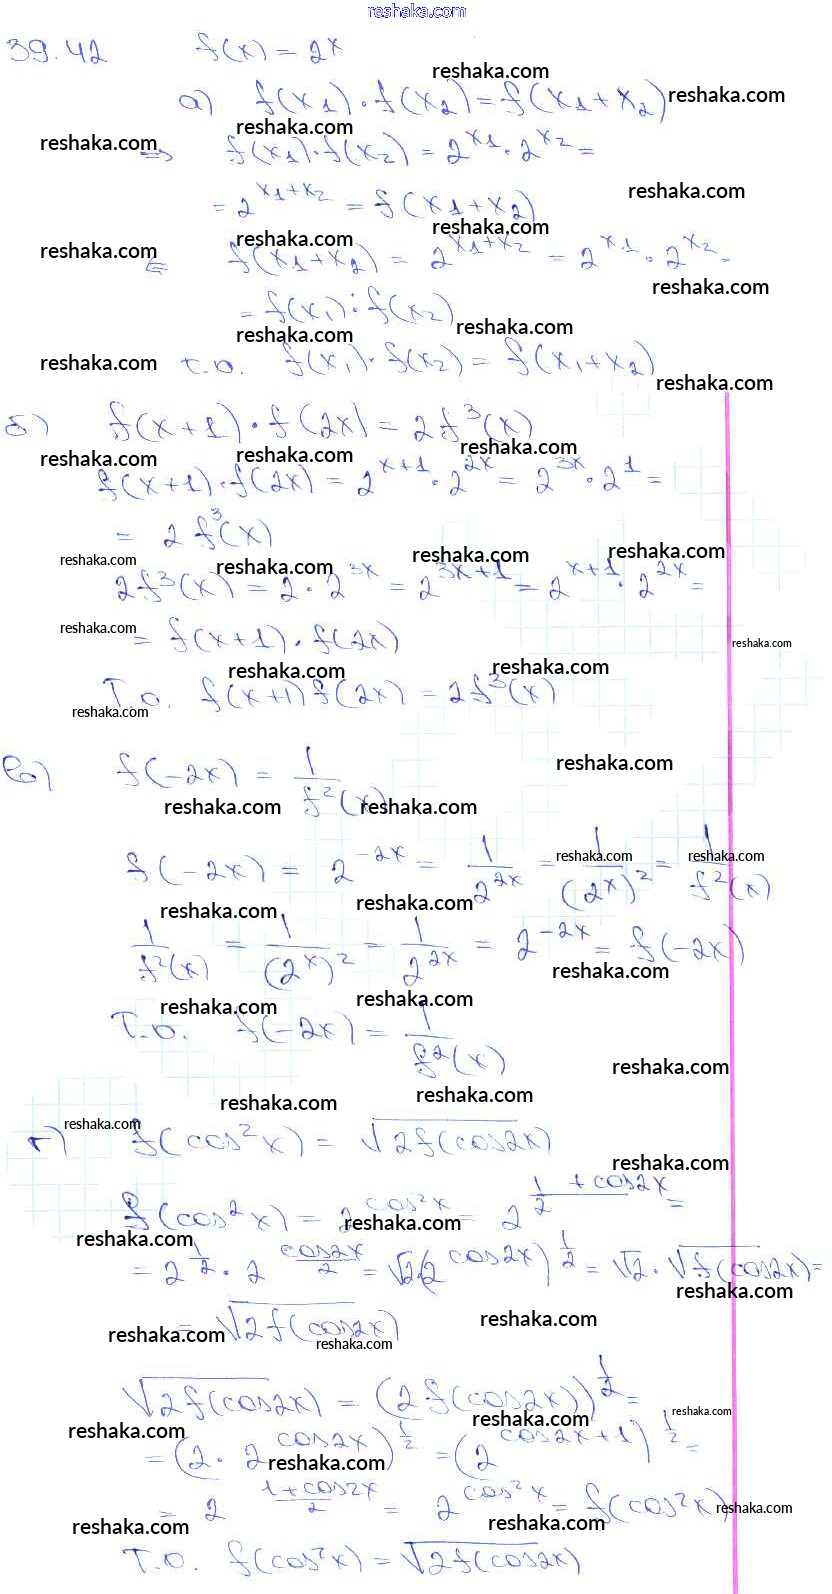 reshaka.com
39.42 f(x) = 2^x
а) f(x1) · f(x2) = f(x1+x2)
=> f(x1)·f(x2) = 2^x1 · 2^x2 =
= 2^x1+x2 = f(x1+x2)
<= f(x1+x2) = 2^x1+x2 = 2^x1 · 2^x2 =
= f(x1) · f(x2)
т.о. f(x1) · f(x2) = f(x1+x2)
б) f(x+1) · f(2x) = 2f³(x)
f(x+1)·f(2x) = 2^x+1 · 2^2x = 2^3x · 2^1 =
= 2f³(x)
2f³(x) = 2 · 2^3x = 2^3x+1 = 2^x+1 · 2^2x =
= f(x+1) · f(2x)
Т.о. f(x+1) f(2x) = 2f³(x)
в) f(-2x) = 1/f²(x)
f(-2x) = 2^-2x = 1/2^2x = 1/(2^x)² = 1/f²(x)
1/f²(x) = 1/(2^x)² = 1/2^2x = 2^-2x = f(-2x)
Т.о. f(-2x) = 1/f²(x)
г) f(cos²x) = √2f(cos2x)
f(cos²x) = 2^cos²x = 2^(1+cos2x)/2 =
= 2^1/2 · 2^cos2x/2 = √2(2^cos2x)^1/2 = √2 · √f(cos2x) =
= √2f(cos2x)
√2f(cos2x) = (2f(cos2x))^1/2 =
= (2 · 2^cos2x)^1/2 = (2^cos2x+1)^1/2 =
= 2^(1+cos2x)/2 = 2^cos²x = f(cos²x)
Т.о. f(cos²x) = √2f(cos2x)